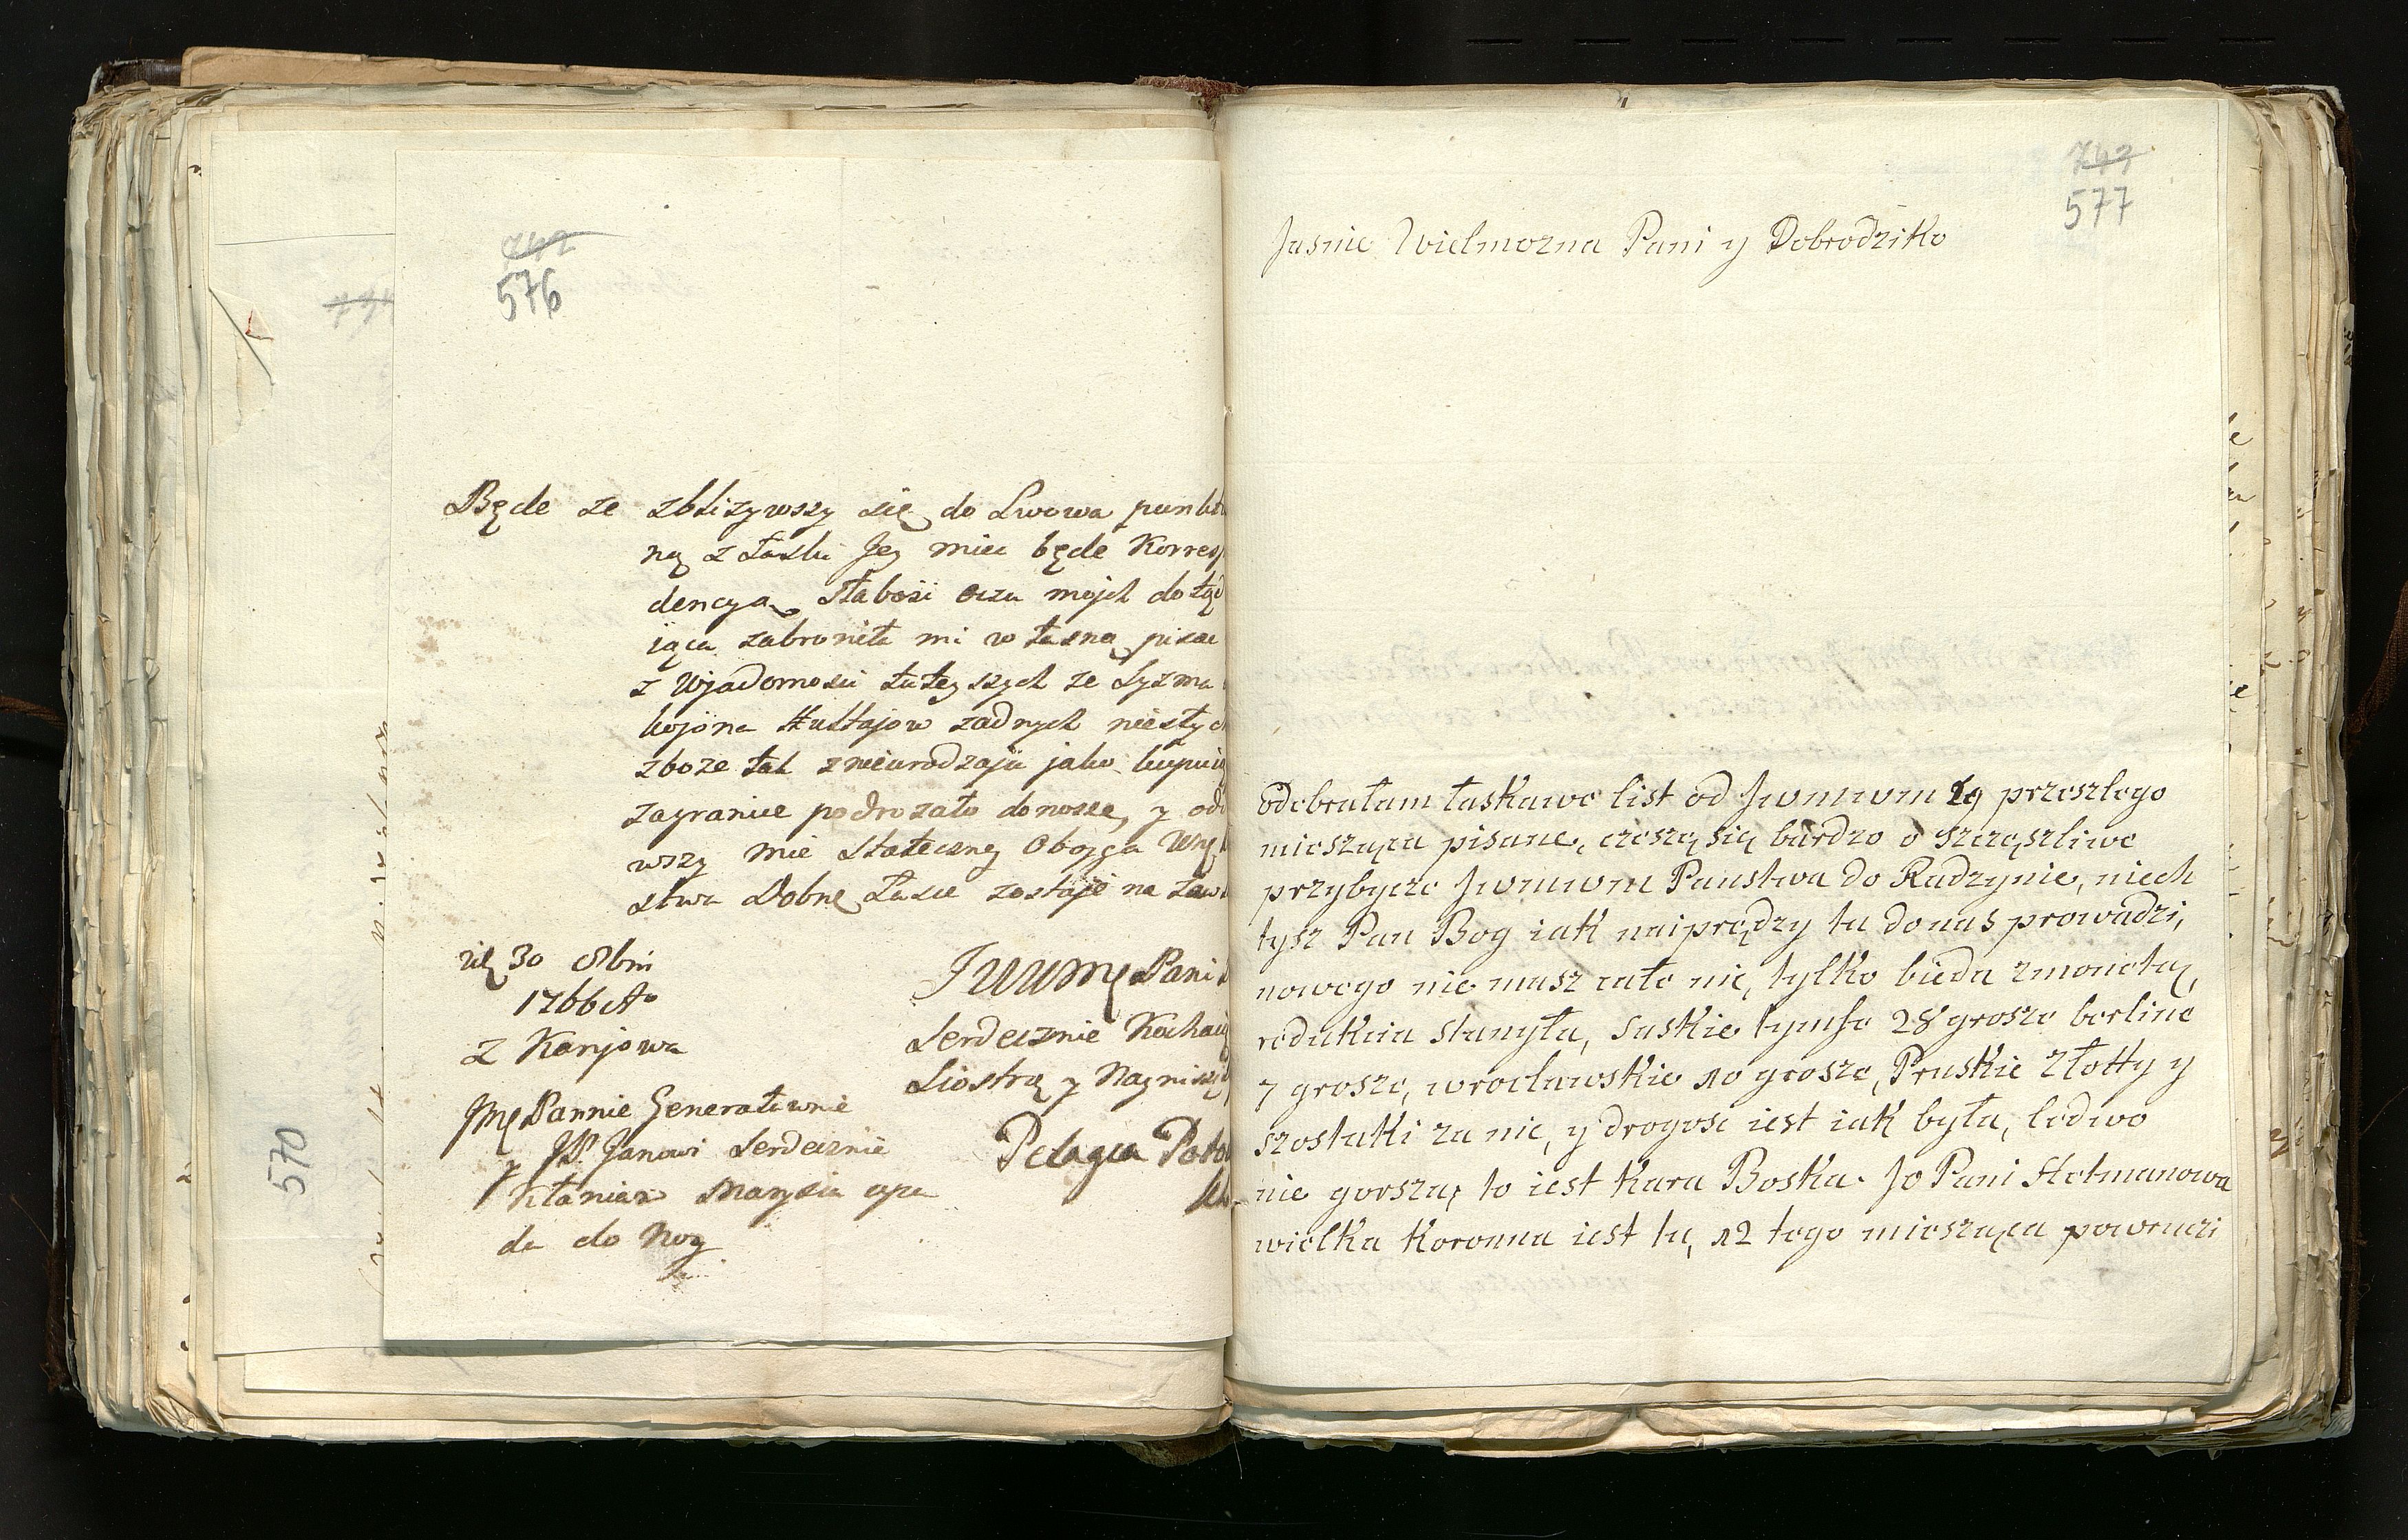 742
576
Będe ze zbliżywszy się do Lwowa punktu
ną z Łaski Jey miec będe Korres
dencyą Słabosi oczu mojch do tąd
iąca zabroniła mi własną pisac
z Wjadomosci tuteyszych ze Syzma
kojöna Hultajow zadnych niesłych
zboze tak znieurodzaju jako kupuią
zagranice podrozało donoszę, y od
wszy mie Stateczney Oboyga Wnę
stwa Dobrę Łasce zostaję na zaw
30 8bris
1766 Ao
z Kanjowa
Jmę Pannie Generałownie
y JP. Janowi Serdecznie
kłaniam Marysia upa
da do Nog
JWWmę Pani
Serdecznie Kochaią
Siostrą y Nayniszą
Pelagia Poto
570
743
577
Jasnie Wielmozna Pani y Dobrodziko
odebrałam łaskawe list od Jwmwm 29 przeszłego
miesząca pisane, czeszę się bardzo o szczęszliwe
przybycze Jwmwm Panstwa do Radzynie, niech
tysz Pan Bog iak naiprędzy tu do nas prowadzi,
nowego nie masz cało nic, tylko bieda zmonetą,
redukcia stanyła, saskie tymfe 28 grosze berline
7 grosze, wrocławskie 10 grosze, Pruskie Złotty y
szostakki za nic, y drogosc iest iak była, ledwo
nie gorsza, to iest kara Boska. Jo Pani Hetmanowa
wielka Koronna iest tu, 12 tego miesząca powraczi